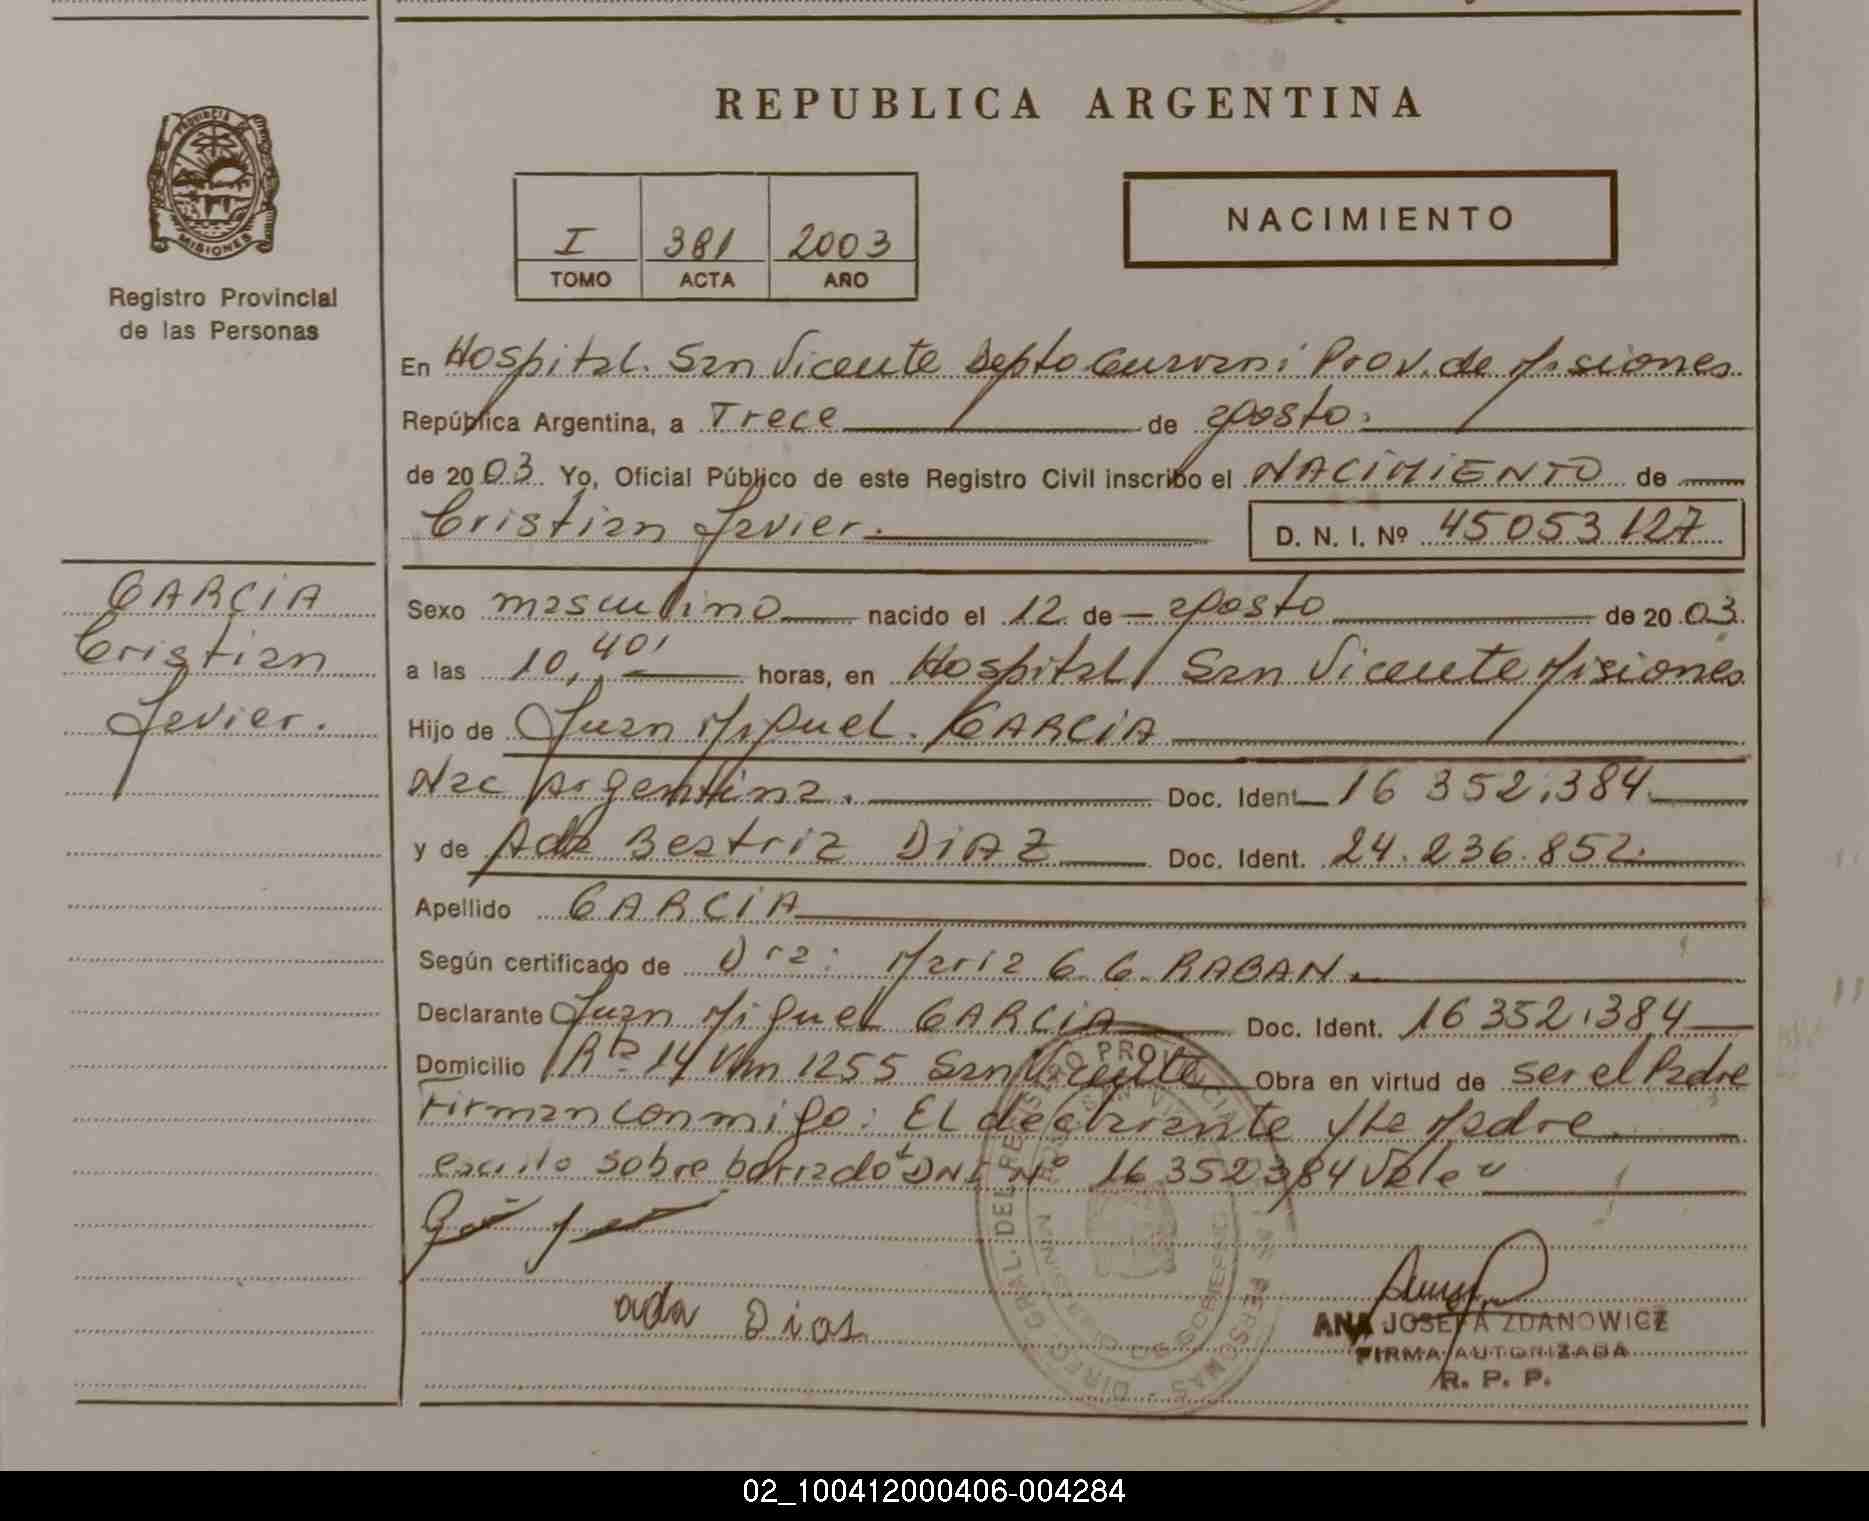 REPUBLICA ARGENTINA
PROVINCIA DE MISIONES
Registro Provincial
de las Personas
I 381 2003
TOMO ACTA AÑO
NACIMIENTO
En Hospital. San Vicente Depto Guarani Prov. de Misiones
República Argentina, a Trece de agosto.
de 2003. Yo, Oficial Público de este Registro Civil inscribo el NACIMIENTO de
Cristian Javier.
D. N. I. Nº 45053127
GARCIA
Cristian
Javier.
Sexo masculino nacido el 12 de agosto de 2003.
a las 10,40' horas, en Hospital San Vicente Misiones
Hijo de Juan Miguel. GARCIA
Nac Argentina. Doc. Ident 16 352.384.
y de Ada Beatriz DIAZ Doc. Ident. 24.236.852.
Apellido GARCIA
Según certificado de Dra: Maria G. G. RABAN.
Declarante Juan Miguel GARCIA Doc. Ident. 16 352.384
Domicilio Rta 14 Km 1255 San Vicente Obra en virtud de ser el Padre
Firman conmigo: El declarante y la Madre.
escrito sobre borrado "DNI Nº 16 352384 Vale"
ada Dias
ANA JOSEFA ZDANOWICZ
FIRMA AUTORIZADA
R. P. P.
02_100412000406-004284